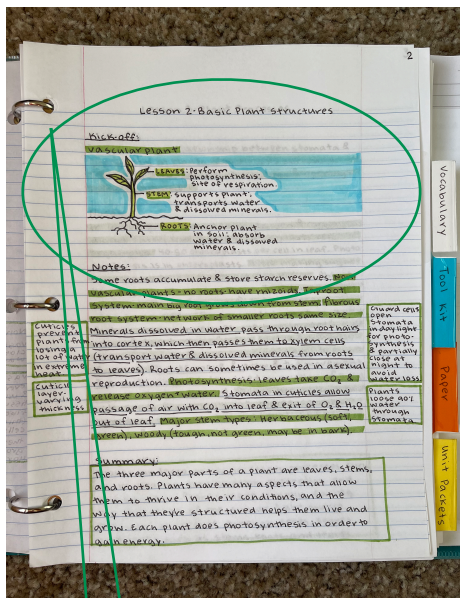 2
Lesson 2-Basic Plant Structures
Kick-off:
vascular plant
LEAVES: Perform
photosynthesis;
site of respiration.
STEM: supports plant;
transports water
& dissolved minerals.
ROOTS: Anchor plant
in soil; absorb
water & dissolved
minerals.
Notes:
Some roots accumulate & store starch reserves. Non-
vascular plants: no roots have rhizoids. Taproot
System: main big root grows down from stem. Fibrous
root system: network of smaller roots same size.
Minerals dissolved in water pass through root hairs
into cortex, which then passes them to xylem cells
(transport water & dissolved minerals from roots
to leaves). Roots can sometimes be used in asexual
reproduction. Photosynthesis: leaves take CO₂ &
release oxygen + water. Stomata in cuticles allow
passage of air with CO₂ into leaf & exit of O₂ & H₂O
out of leaf. Major stem types: Herbaceous (soft,
green), woody (tough, not green, may be in bark).
Cuticles
prevent
plants from
losing a
lot of water
in extreme
heat.
Cuticle
layer-
varying
thickness.
Guard cells
open
stomata
in daylight
for photo-
synthesis
& partially
close at
night to
avoid
water loss.
Plants
loose 90%
water
through
stomata.
Summary:
The three major parts of a plant are leaves, stems,
and roots. Plants have many aspects that allow
them to thrive in their conditions, and the
way that they're structured helps them live and
grow. Each plant does photosynthesis in order to
gain energy.
Vocabulary
Tool Kit
Paper
Unit Packets